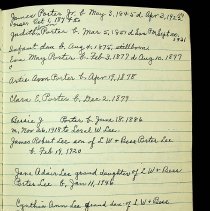 James Porter Jr. b May 3, 1845 d Apr. 2, 1925
Judith Porter b. Mar 5, 1851 d Sept 20, 1921
Infant dau b. Aug. 11, 1875, stillborn
Eva May Porter b. Feb. 3, 1877 d Aug. 10, 1877
Artie Ann Porter b. Apr. 19, 1878
Clara E. Porter b. Dec. 2, 1879
Bessie J Porter b. June 18, 1886
m, Nov 26, 1914 to Lorel W Lee
James Robert Lee son of L W & Bess Porter Lee
b. Feb 19, 1920
Jane Adair Lee grand daughter of L W & Bess
Porter Lee b, Jan 11, 1946
Cynthia Ann Lee grand dau of L W & Bess